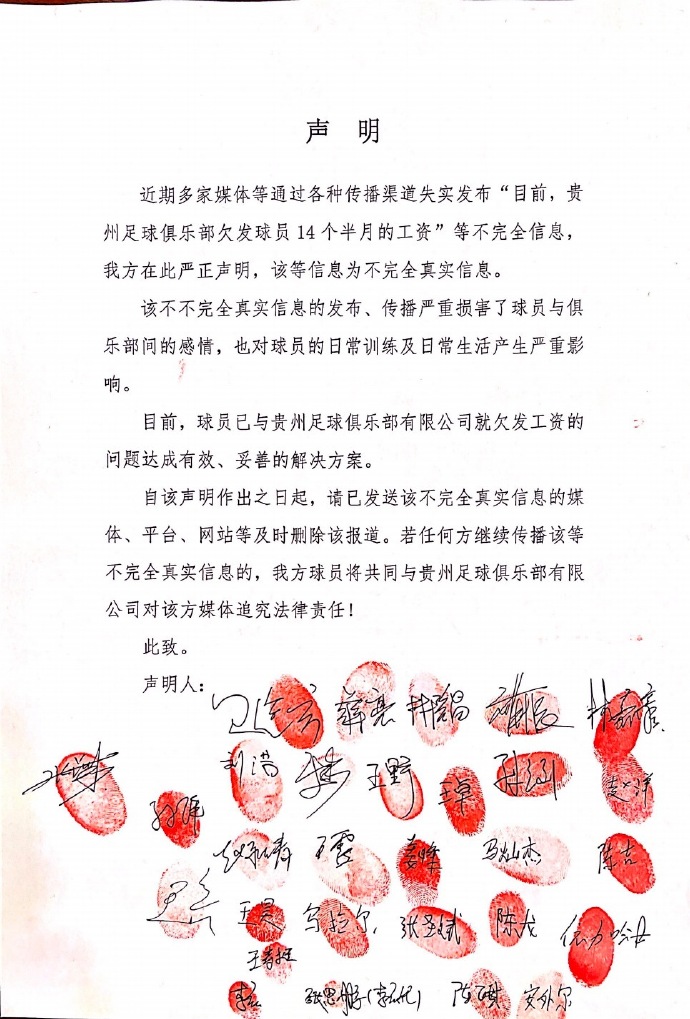 声 明
近期多家媒体等通过各种传播渠道失实发布“目前，贵
州足球俱乐部欠发球员14个半月的工资”等不完全信息，
我方在此严正声明，该等信息为不完全真实信息。
该不不完全真实信息的发布、传播严重损害了球员与俱
乐部间的感情，也对球员的日常训练及日常生活产生严重影
响。
目前，球员已与贵州足球俱乐部有限公司就欠发工资的
问题达成有效、妥善的解决方案。
自该声明作出之日起，请已发送该不完全真实信息的媒
体、平台、网站等及时删除该报道。若任何方继续传播该等
不完全真实信息的，我方球员将共同与贵州足球俱乐部有限
公司对该方媒体追究法律责任！
此致。
声明人：
刘浩 王野 王卓
马灿杰 陈吉
王昊 乌拉尔 张圣斌 陈龙 依力哈木
安外尔